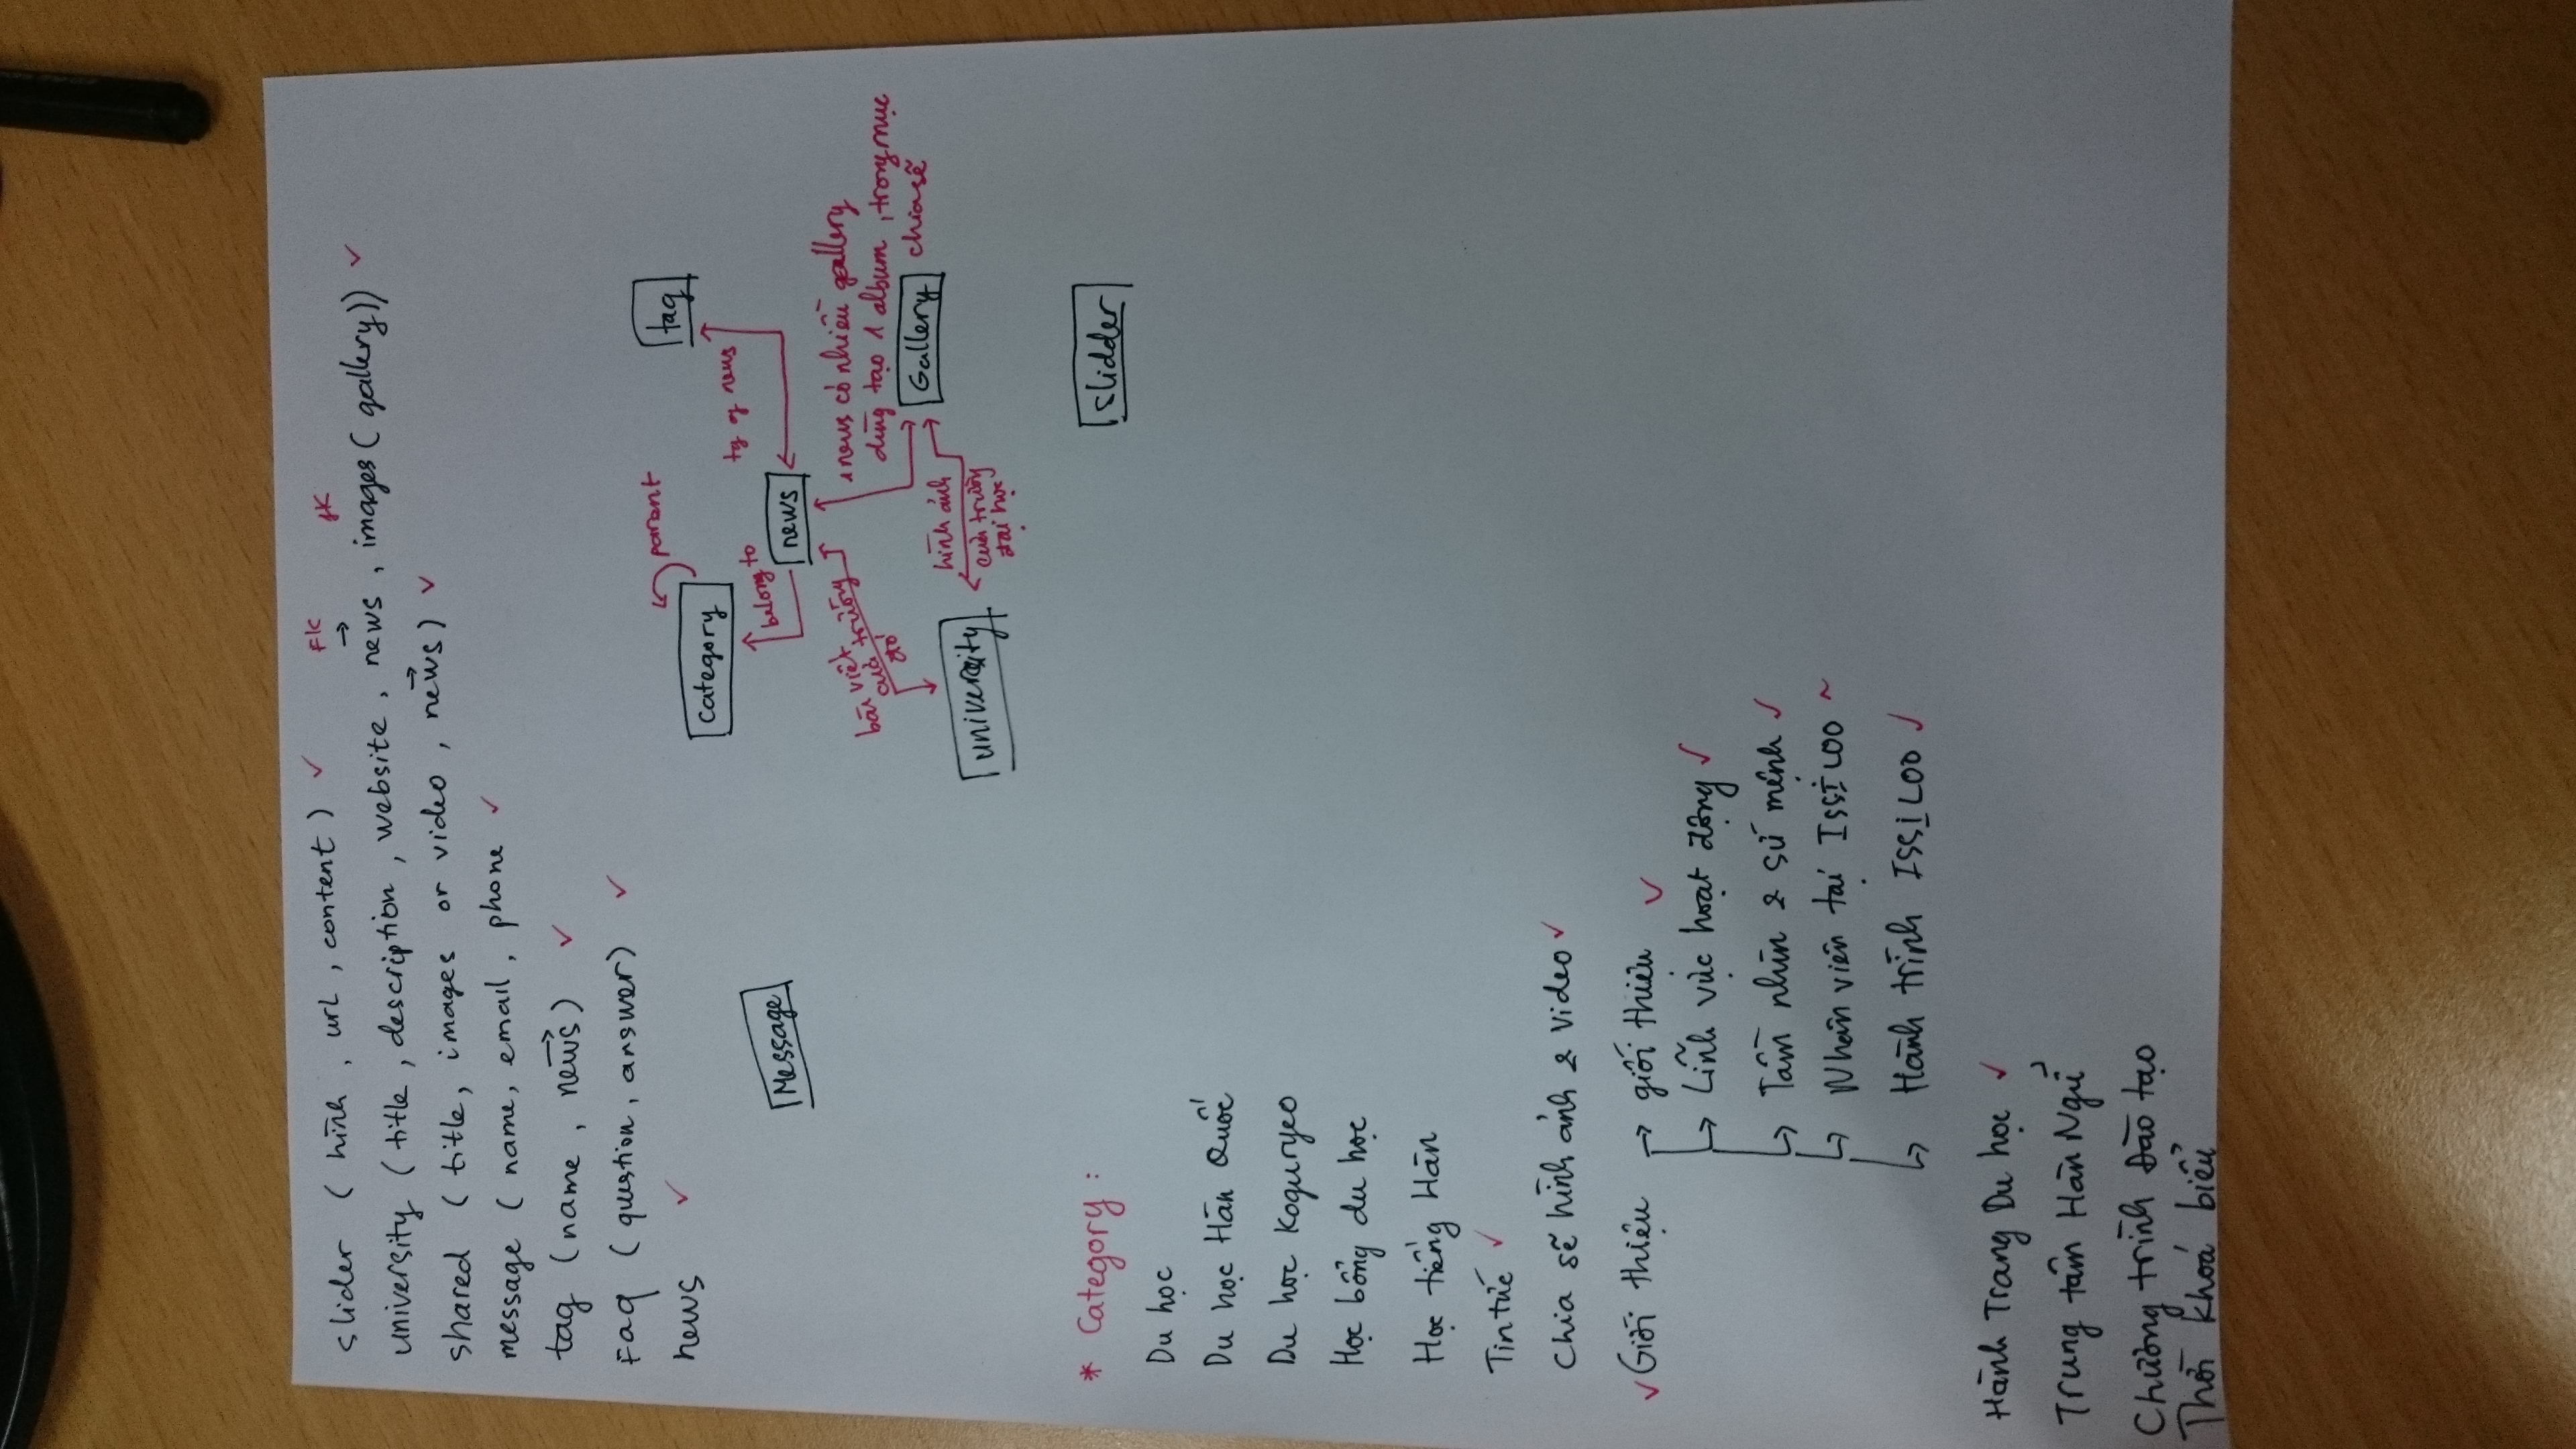 FK fK
slider ( hình , url , content ) ✓
university ( title , description , website , news , images ( gallery)) ✓
shared ( title, images or video , news ) ✓
message ( name, email , phone ✓
tag ( name , news ) ✓
Faq ( question , answer) ✓
news ✓
parent
tag
category
tg of news
belong to
Message
news
bài viết
của trường
đó
1 news có nhiều gallery
dùng tạo 1 album , trong mục
chia sẽ
Gallery
hình ảnh
của trường
đại học
university
slidder
* Category :
Du học
Du học Hàn Quốc
Du học Koguryeo
Học bổng du học
Học tiếng Hàn
Tin tức ✓
Chia sẽ hình ảnh & Video ✓
✓ Giới thiệu → giới thiệu ✓
↳ Lĩnh vực hoạt động ✓
↳ Tầm nhìn & sứ mệnh ✓
↳ Nhân viên tại ISSiLOO ~
↳ Hành trình ISSiLOO ✓
Hành Trang Du học ✓
Trung tâm Hàn Ngữ
Chương trình Đào tạo
Thời khoá biểu